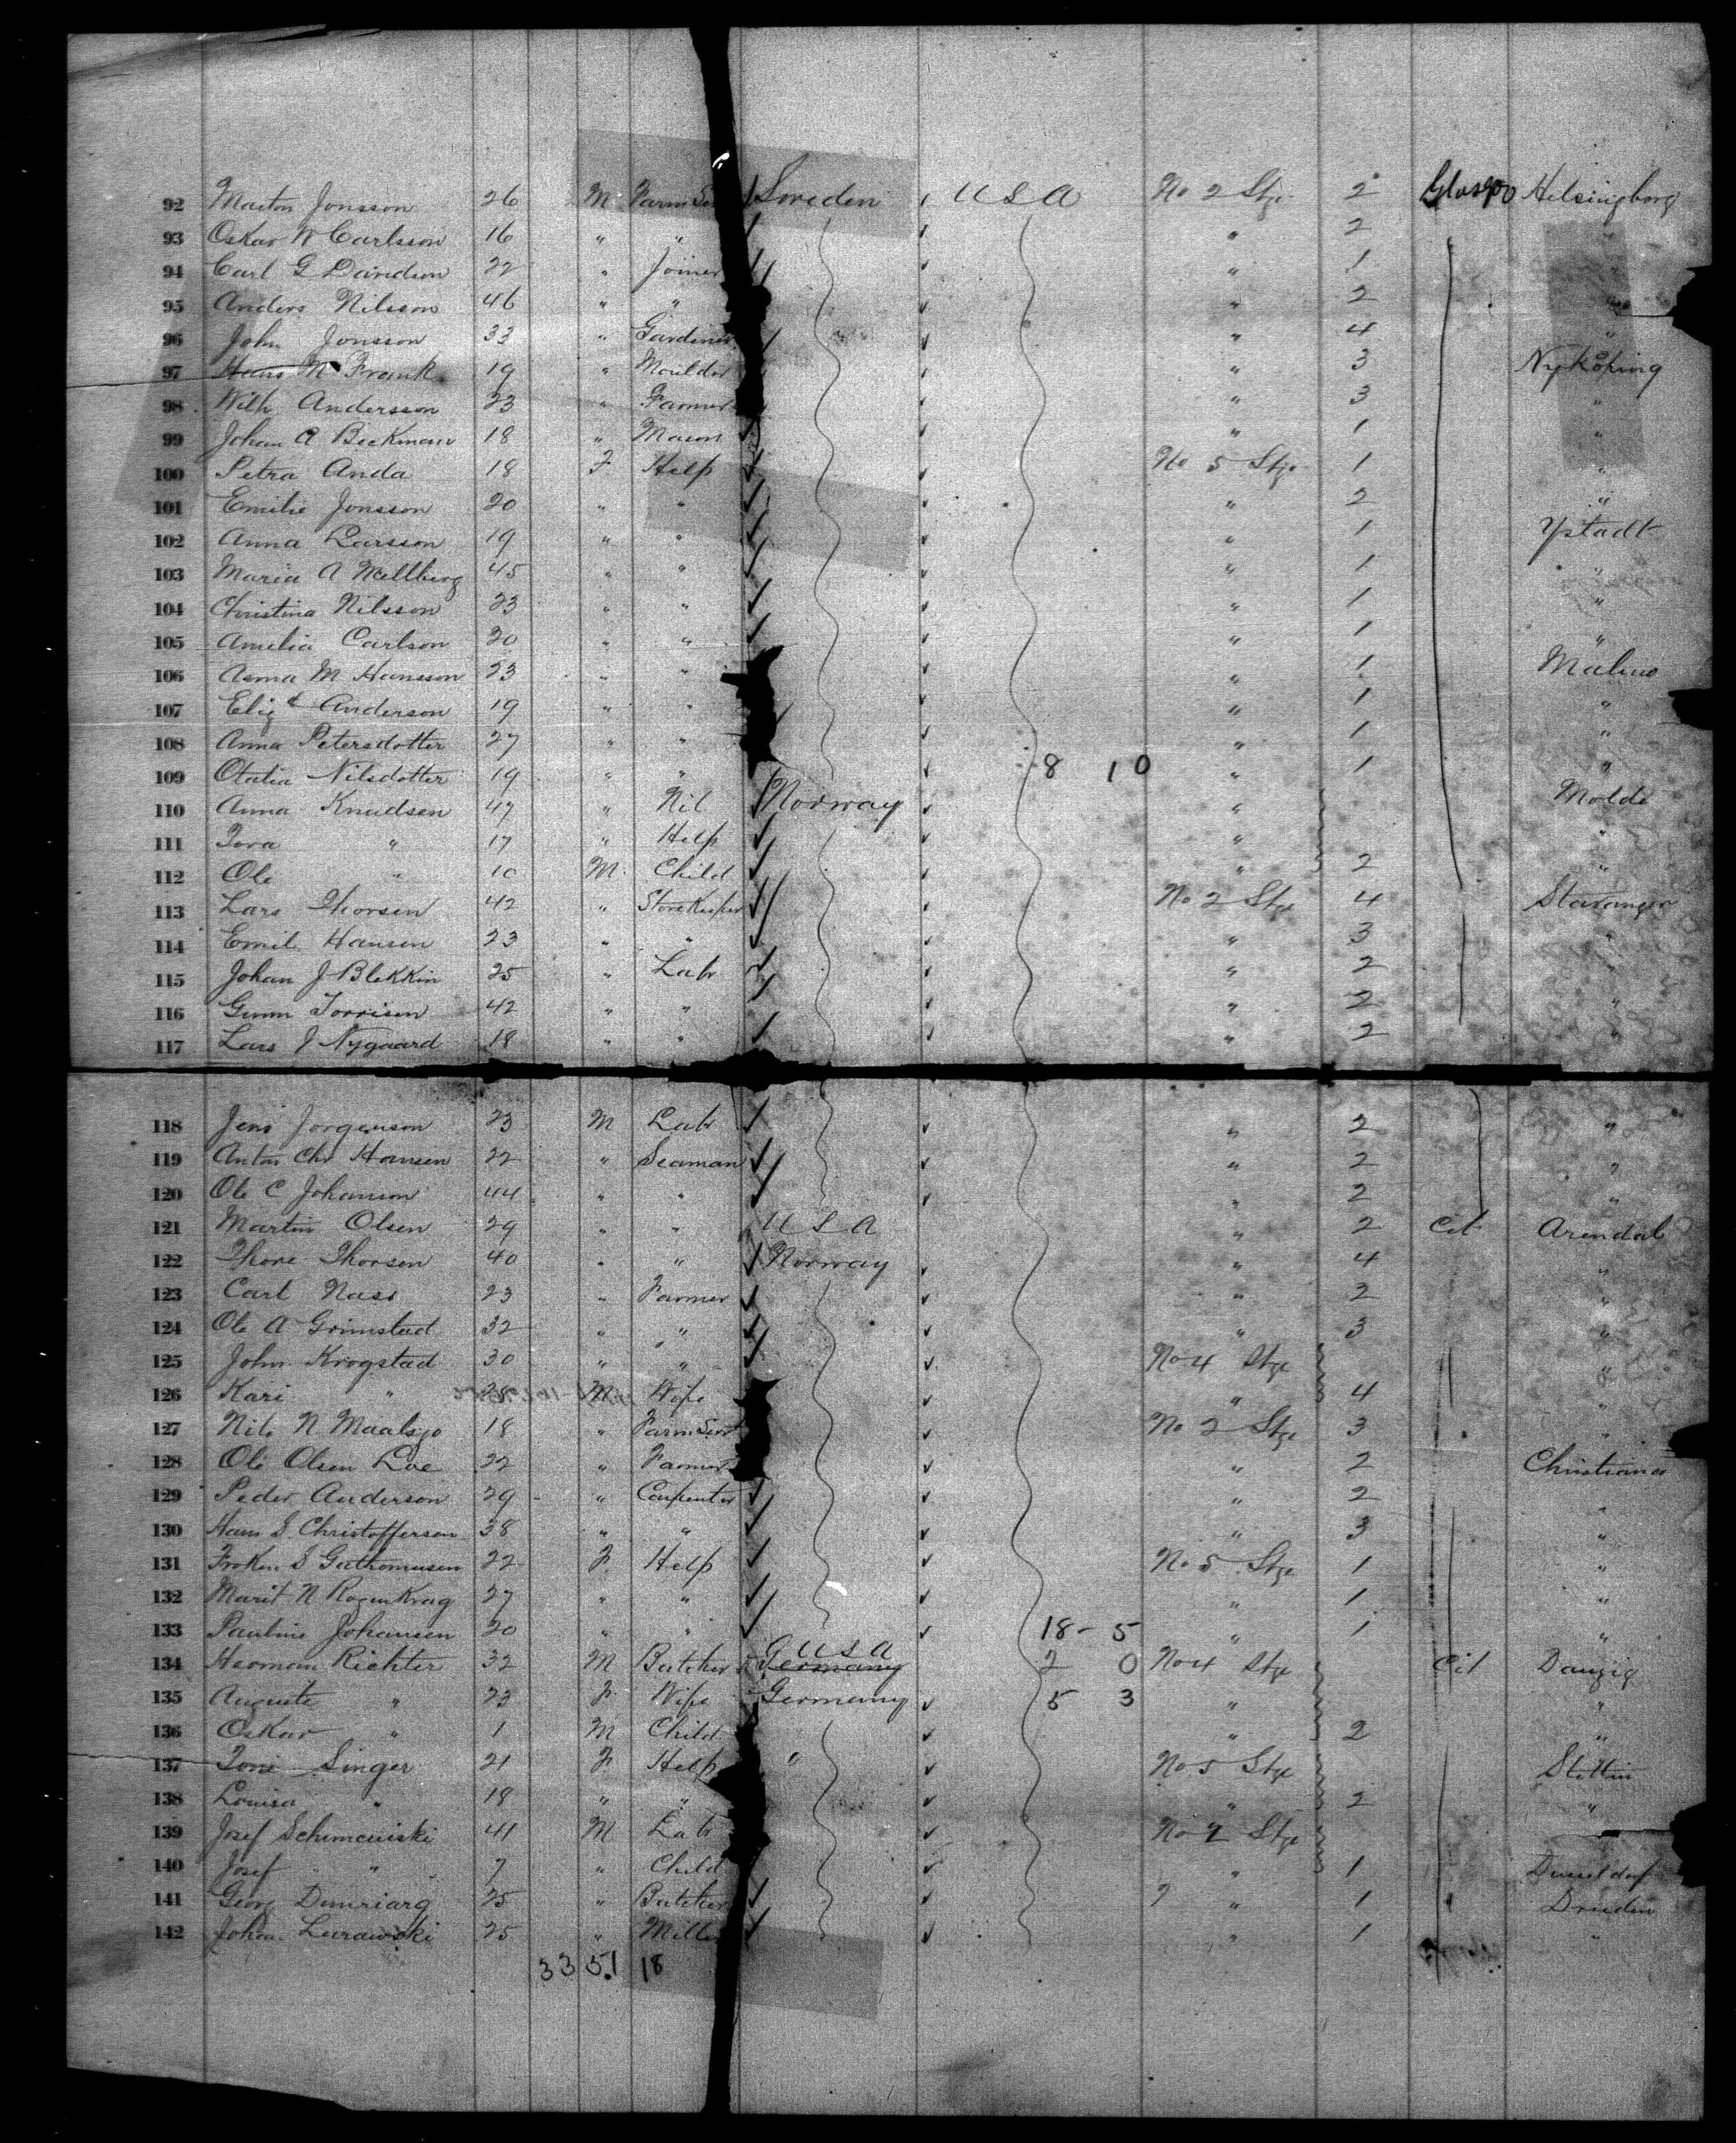 92 Marten Jonsson 26 M Farm Ser Sweden USA No 2 Stge 2 Glasgo Helsingborg
93 Oskar W Carlsson 16 " " " 2 "
94 Carl G Davidson 22 " Joiner " 1 "
95 Anders Nilsson 46 " " " 2 "
96 John Jonsson 33 " Gardener " 4 "
97 Hans M Frank 19 " Moulder " 3 Nyköping
98 Wilh Andersson 23 " Farmer " 3 "
99 Johan A Beckman 18 " Mason " 1 "
100 Petra Anda 18 F Help No 5 Stge 1 "
101 Emilie Jonsson 20 " " " 2 "
102 Anna Larsson 19 " " " 1 Ystadt
103 Maria A Wellberg 45 " " " 1 "
104 Christina Nilsson 23 " " " 1 "
105 Amelia Carlson 20 " " " 1 "
106 Anna M Hansson 23 " " " 1 Malmo
107 Elizt Anderson 19 " " " 1 "
108 Anna Petersdotter 27 " " " 1 "
109 Otalia Nilsdotter 19 " " 8 10 " 1 "
110 Anna Knudsen 47 " Nil Norway " Molde
111 Tora " 17 " Help " "
112 Ole " 10 M Child " 2 "
113 Lars Thorsen 42 " Storekeeper No 2 Stge 4 Stavanger
114 Emil Hansen 23 " " " 3 "
115 Johan J Blekkin 25 " Labr " 2 "
116 Gunn Torrisen 42 " " " 2 "
117 Lars J Nygaard 18 " " " 2 "
118 Jens Jorgenson 23 M Labr " 2 "
119 Anton Chr Hansen 22 " Seaman " 2 "
120 Ole C Johanson 44 " " " 2 "
121 Martin Olsen 29 " " USA " 2 Cit Arendal
122 Thore Thorsen 40 " " Norway " 4 "
123 Carl Nass 23 " Farmer " 2 "
124 Ole A Grimstad 32 " " " 3 "
125 John Krogstad 30 " " No 4 Stge "
126 Kari " 28 M Wife " 4 "
127 Nils N Maalsjo 18 " Farm Sert No 2 Stge 3 "
128 Ole Olsen Loe 22 " Farmer " 2 Christiana
129 Peder Anderson 29 " Carpenter " 2 "
130 Hans S. Christofferson 38 " " " 3 "
131 Froken S Guthomusen 22 F Help No 5 Stge 1 "
132 Marit N Rosenkrag 27 " " " 1 "
133 Pauline Johansen 20 " " 18- 5 " 1 "
134 Herman Richter 32 M Butcher Germany USA 2 0 No 4 Stge Cit Danzig
135 Auguste " 23 F Wife Germany 5 3 " "
136 Oskar " 1 M Child " 2 "
137 Toni Singer 21 F Help " No 5 Stge Stettin
138 Louisa " 18 " " " 2 "
139 Josef Schimcuiski 41 M Labr No 2 Stge
140 Josef " 7 " Child " 1 Dusseldorf
141 Georg Dunriarg 25 " Butcher " 1 Dresden
142 Johan Lurawski 25 " Miller " 1 "
33 51 18